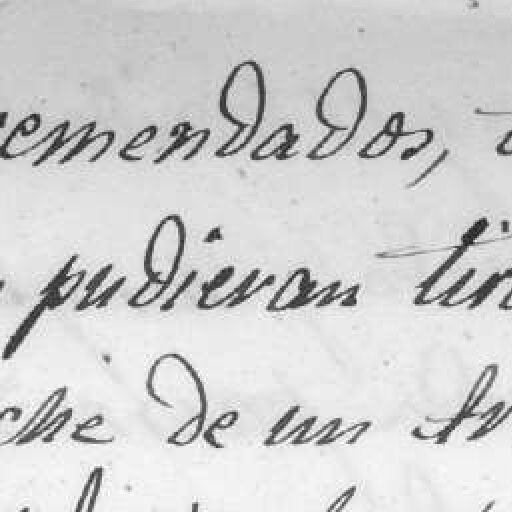 remendados, t
pudieran tir
che de un tr